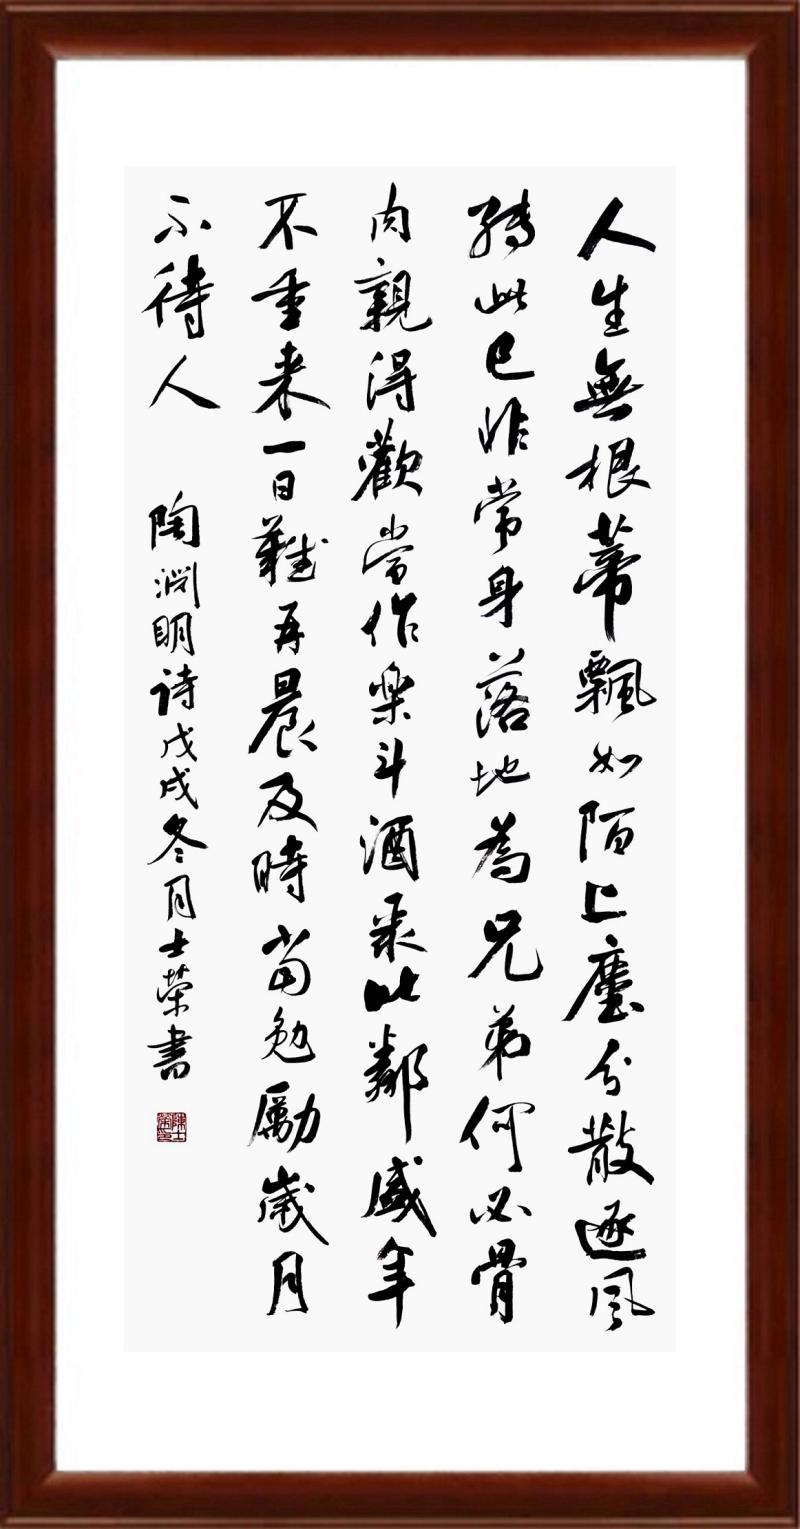 人生無根蒂飄如陌上塵分散逐風
轉此已非常身落地為兄弟何必骨
肉親得歡當作樂斗酒聚比鄰盛年
不重来一日難再晨及時當勉勵歲月
不待人
陶淵明诗戊戌冬月士荣書
陳士榮印